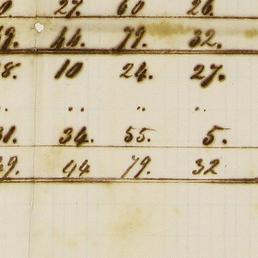 0. 27. 60 26.
49. 44. 79. 32.
8. 10 24. 27.
" " " "
31. 34. 55. 5.
49. 44 79. 32